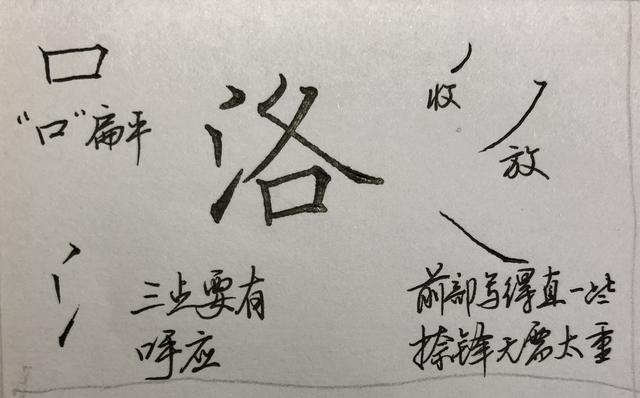 口
"口"扁平
洛
收
放
三点要有
呼应
前部写得直一些
捺锋无需太重